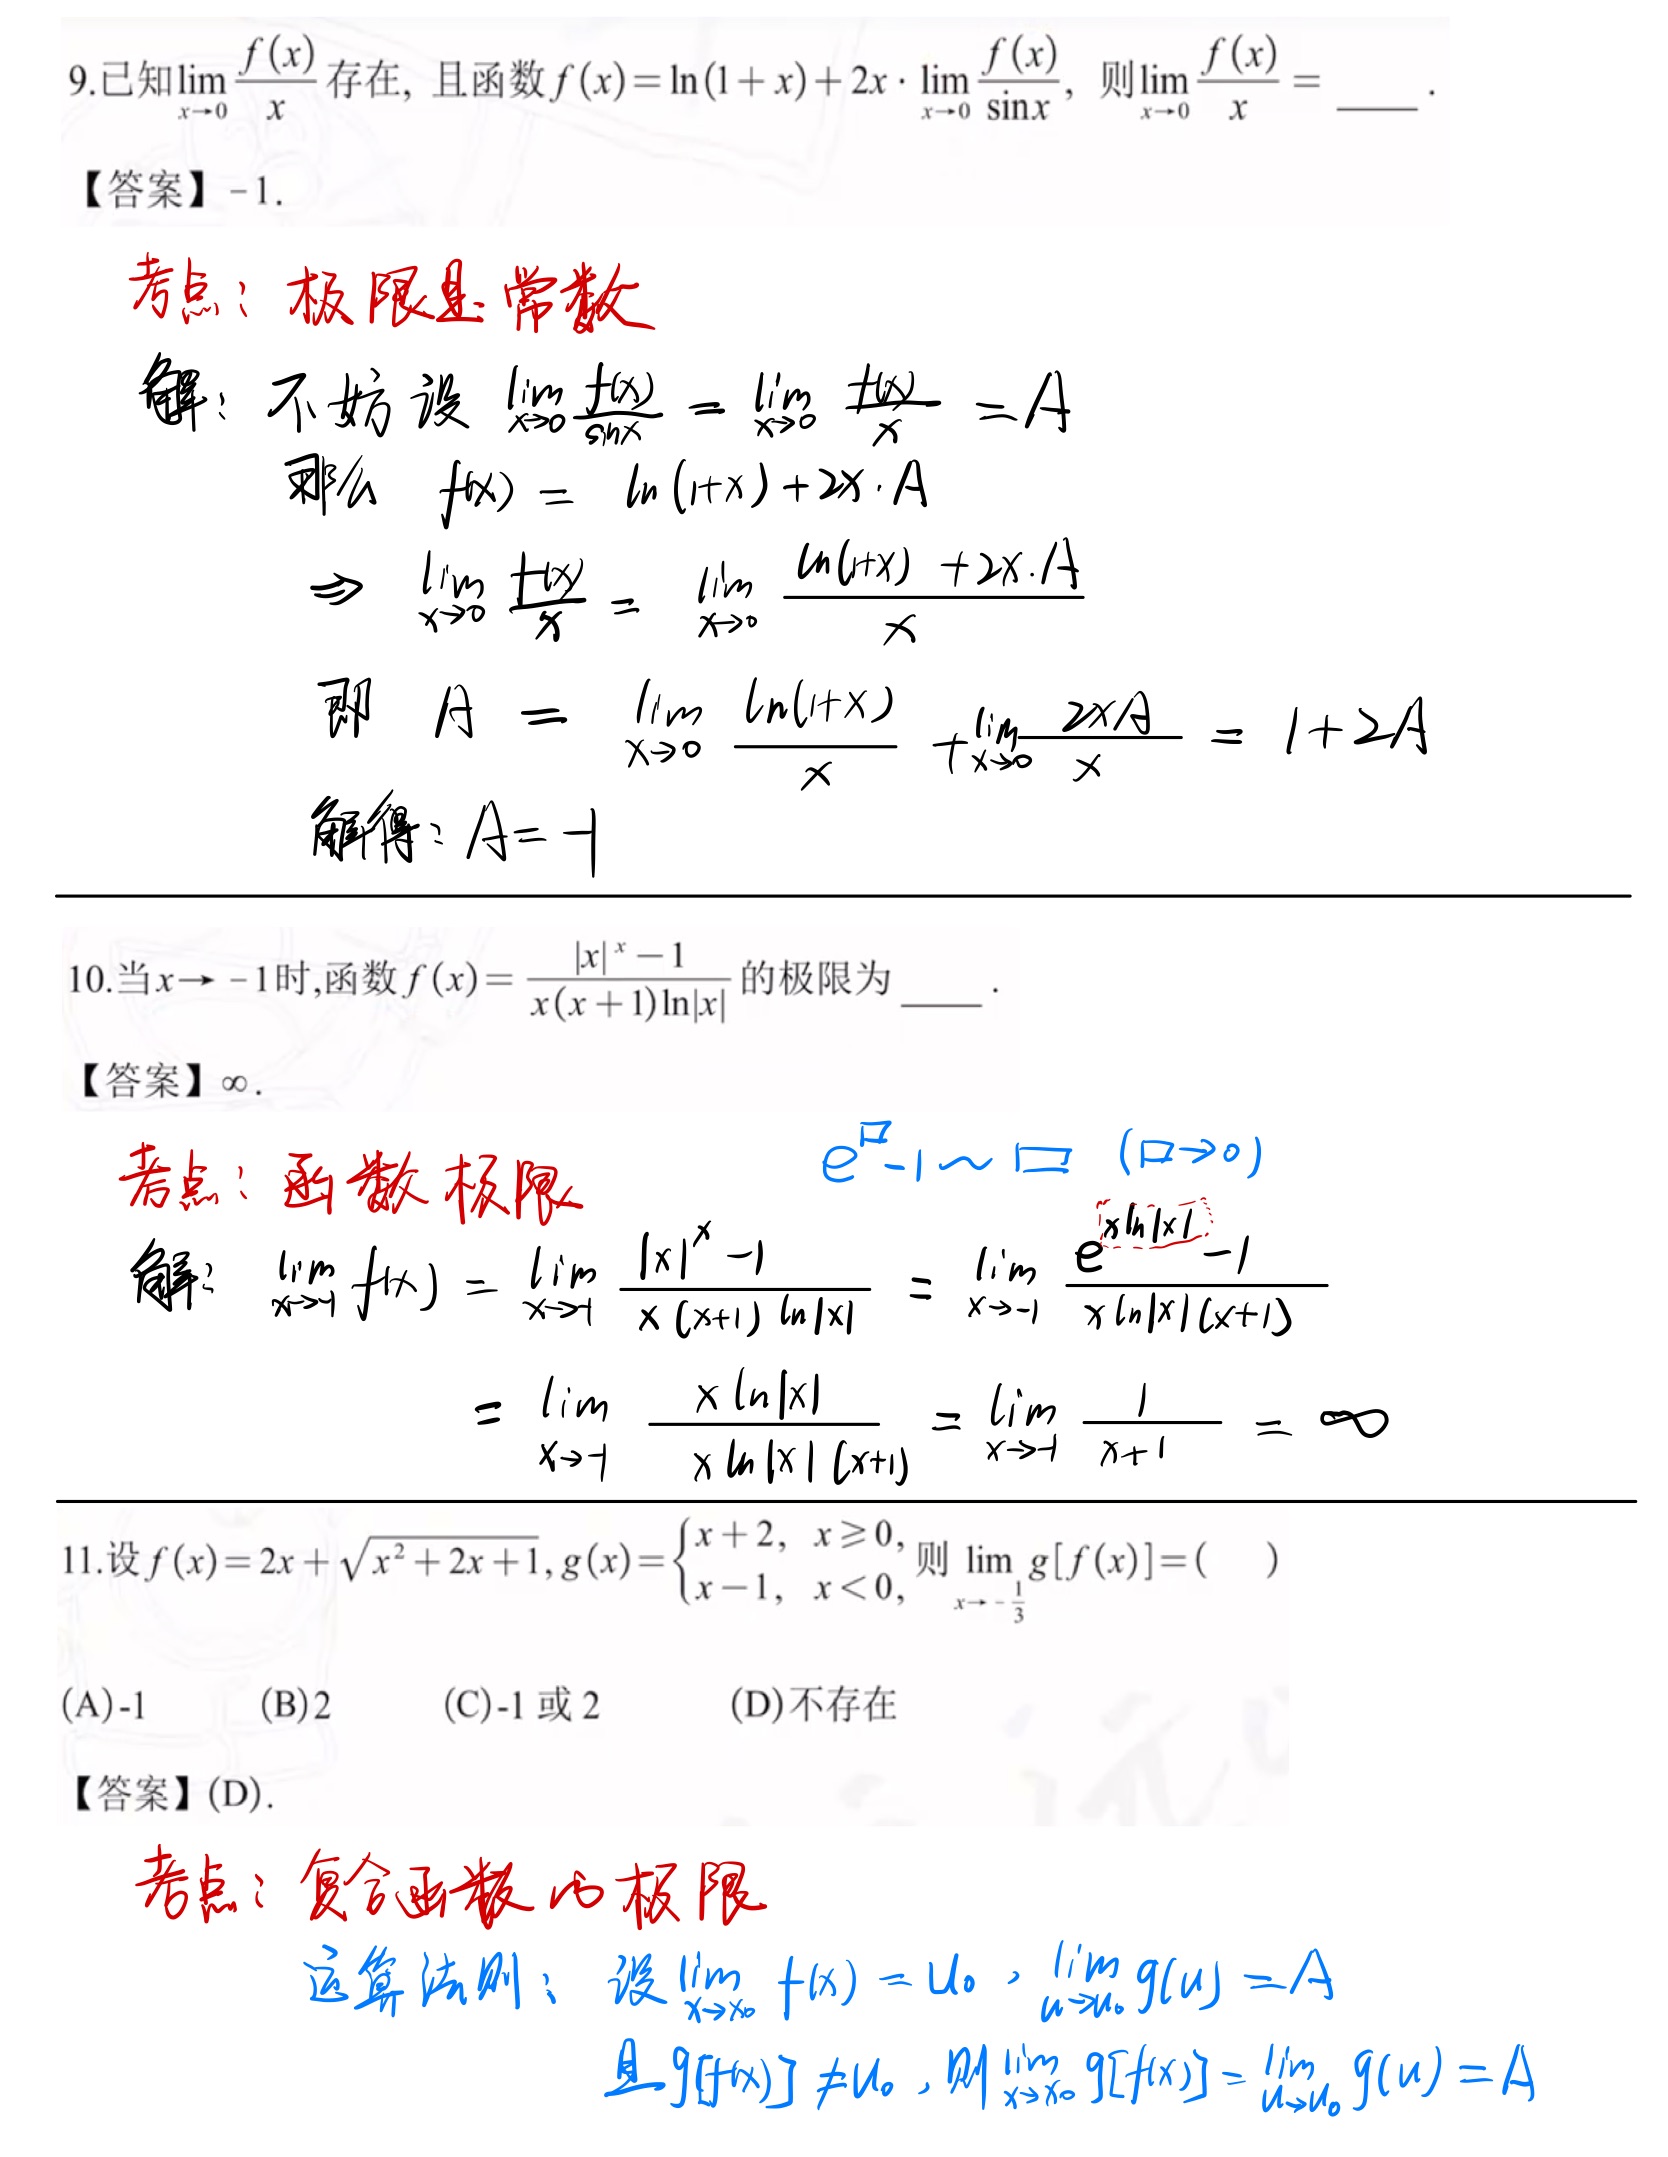 9.已知lim_{x→0} f(x)/x 存在, 且函数f(x)=ln(1+x)+2x·lim_{x→0} f(x)/sinx, 则lim_{x→0} f(x)/x = ____.
【答案】-1.
考点: 极限是常数
解: 不妨设 lim_{x→0} f(x)/sinx = lim_{x→0} f(x)/x = A
那么 f(x) = ln(1+x)+2x·A
⇒ lim_{x→0} f(x)/x = lim_{x→0} (ln(1+x)+2x·A)/x
即 A = lim_{x→0} ln(1+x)/x + lim_{x→0} 2xA/x = 1+2A
解得: A=-1
10.当x→-1时,函数f(x)= (|x|^x-1)/(x(x+1)ln|x|) 的极限为 ____.
【答案】∞.
e^□-1~□ (□→0)
考点: 函数极限
解: lim_{x→-1} f(x) = lim_{x→-1} (|x|^x-1)/(x(x+1)ln|x|) = lim_{x→-1} (e^{xln|x|}-1)/(xln|x|(x+1))
= lim_{x→-1} xln|x|/(xln|x|(x+1)) = lim_{x→-1} 1/(x+1) = ∞
11.设f(x)=2x+√(x²+2x+1), g(x)={x+2, x≥0, x-1, x<0, 则 lim_{x→-1/3} g[f(x)]=( )
(A)-1 (B)2 (C)-1或2 (D)不存在
【答案】(D).
考点: 复合函数的极限
运算法则: 设lim_{x→x₀} f(x)=u₀, lim_{u→u₀} g(u)=A
且g[f(x)]≠u₀, 则lim_{x→x₀} g[f(x)]=lim_{u→u₀} g(u)=A